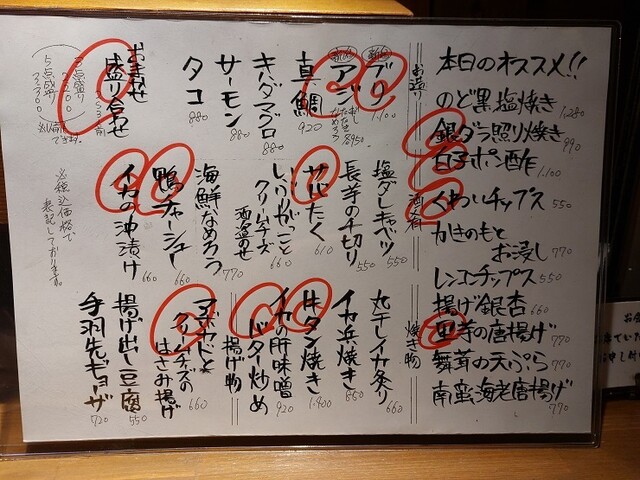 本日のオススメ!!
のど黒塩焼き 1,280
銀ダラ照り焼き 990
白子ポン酢 1.100
くわいチップス 550
かきのもと
お浸し 770
レンコンチップス 550
揚げ銀杏 660
里芋の唐揚げ 770
舞茸の天ぷら 770
南蛮海老唐揚げ 770
お造り
ブリ 1,100
アジ
真鯛 920
キハダマグロ 880
サーモン 880
タコ 880
おまかせ
盛り合わせ
3点盛り
5点盛り
酒肴
塩ダレキャベツ 550
長芋の千切り 550
サバたく 610
いぶりがっこと
クリームチーズ 660
酒盗のせ
海鮮なめろう 770
鴨チャーシュー 660
イカの沖漬け 660
※税込価格で
表記しております。
焼き物
丸干しイカ炙り 660
イカ浜焼き 850
牛タン焼き 1.400
イカの肝味噌
バター炒め 920
揚げ物
アボカドと
クリームチーズの
はさみ揚げ 660
揚げ出し豆腐 550
手羽先ギョーザ 720